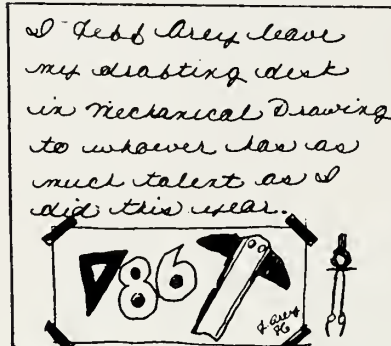 I Jeff Arey leave
my drafting desk
in Mechanical Drawing
to whoever has as
much talent as I
did this year.
86
J. Arey
86